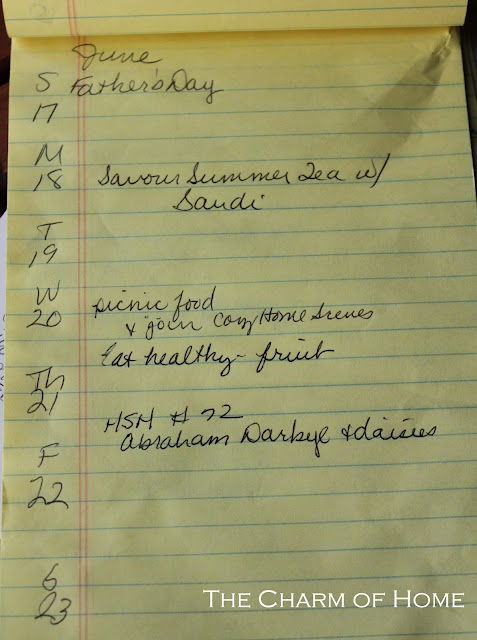 2
June
S Father's Day
17
M
18 Savour Summer Tea w/
Sandi
T
19
W
20 picnic food
& join Cozy Home Scenes
Eat healthy - fruit
Th
21
HSH # 72
Abraham Darbye & daisies
F
22
S
23
THE CHARM OF HOME